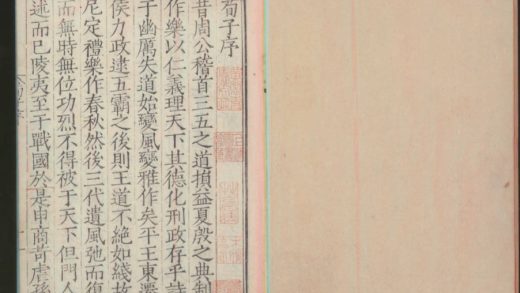 荀子序
昔周公稽首三五之道損益夏殷之典制
作樂以仁義理天下其德化刑政存乎詩
于幽厲失道始變風變雅作矣平王東遷
侯力政逮五霸之後則王道不絕如綫故
尼定禮樂作春秋然後三代遺風弛而復
而無時無位功烈不得被于天下但門人
述而已陵夷至于戰國於是申商苛虐孫